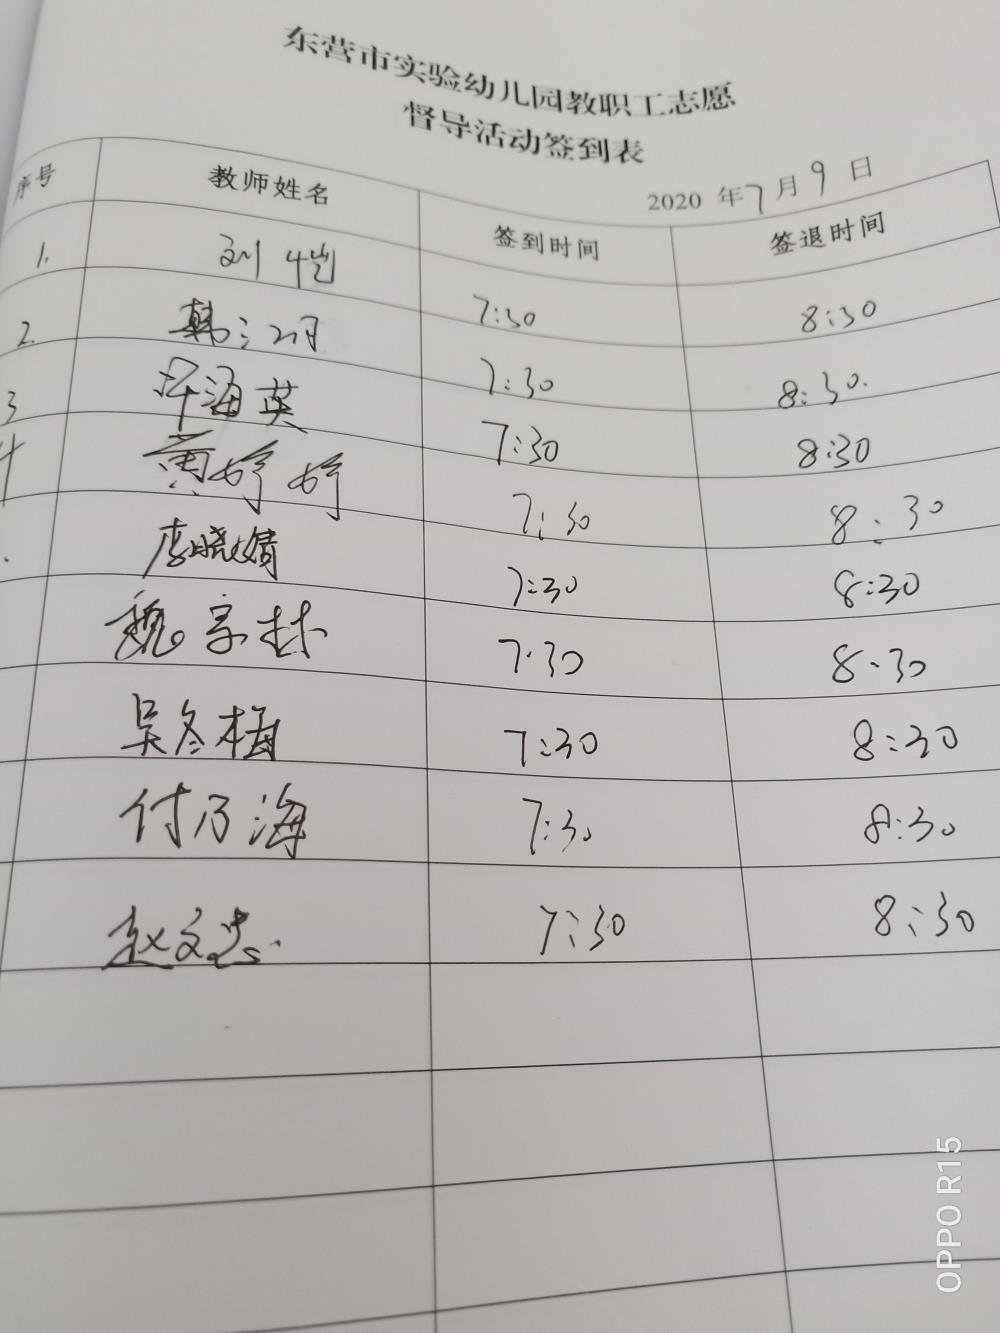 东营市实验幼儿园教职工志愿
督导活动签到表
2020 年7月9日
序号 教师姓名 签到时间 签退时间
1. 刘恺 7:30 8:30
2. 韩 7:30 8:30.
3 海英 7:30 8:30
4 黄婷婷 7:30 8:30
李晓婧 7:30 8:30
魏宗林 7:30 8:30
吴冬梅 7:30 8:30
付乃海 7:30 8:30
赵文 7:30 8:30
OPPO R15